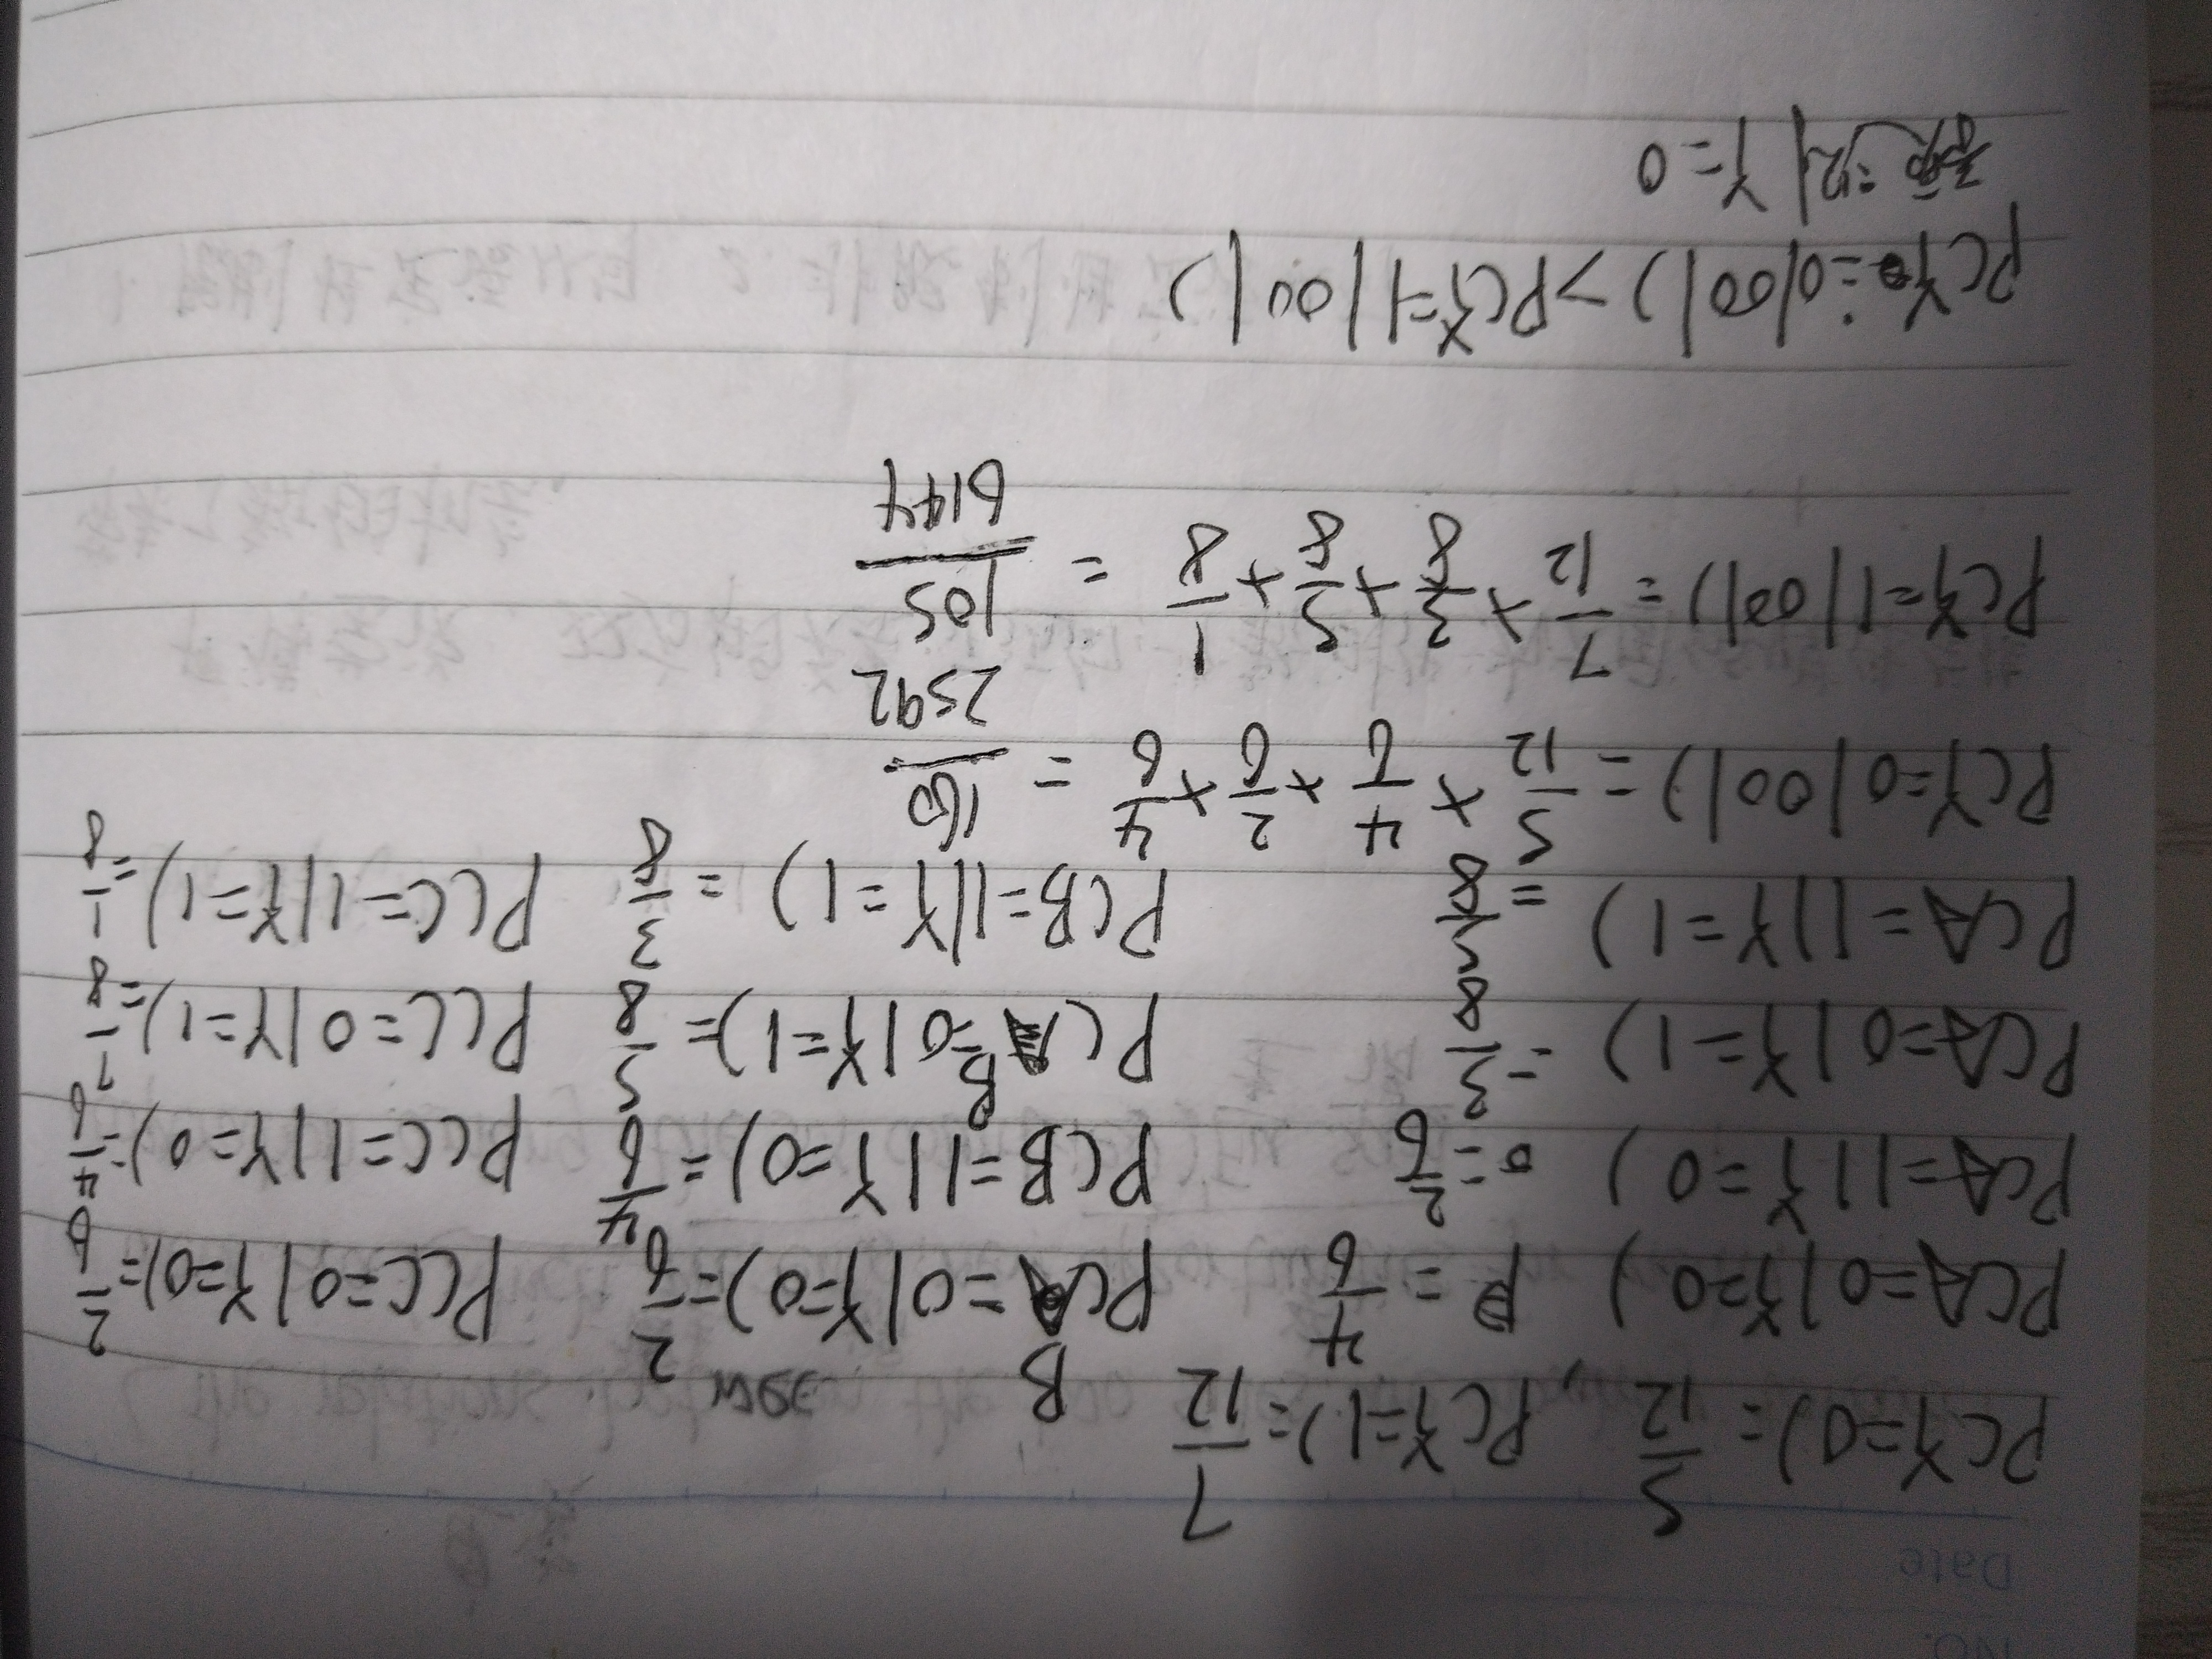 NO.
Date
P(Y=0)=5/12, P(Y=1)=7/12
P(A=0|Y=0) =4/6 P(B=0|Y=0)=2/6 P(C=0|Y=0)=2/6
P(A=1|Y=0) =2/6 P(B=1|Y=0)=4/6 P(C=1|Y=0)=4/6
P(A=0|Y=1) =3/8 P(B=0|Y=1)=5/8 P(C=0|Y=1)=7/8
P(A=1|Y=1) =5/8 P(B=1|Y=1)=3/8 P(C=1|Y=1)=1/8
P(Y=0|001)=5/12×4/6×2/6×4/6=160/2592
P(Y=1|001)=7/12×3/8×5/8×1/8=105/6144
P(Y=0|001)>P(Y=1|001)
预测Y=0